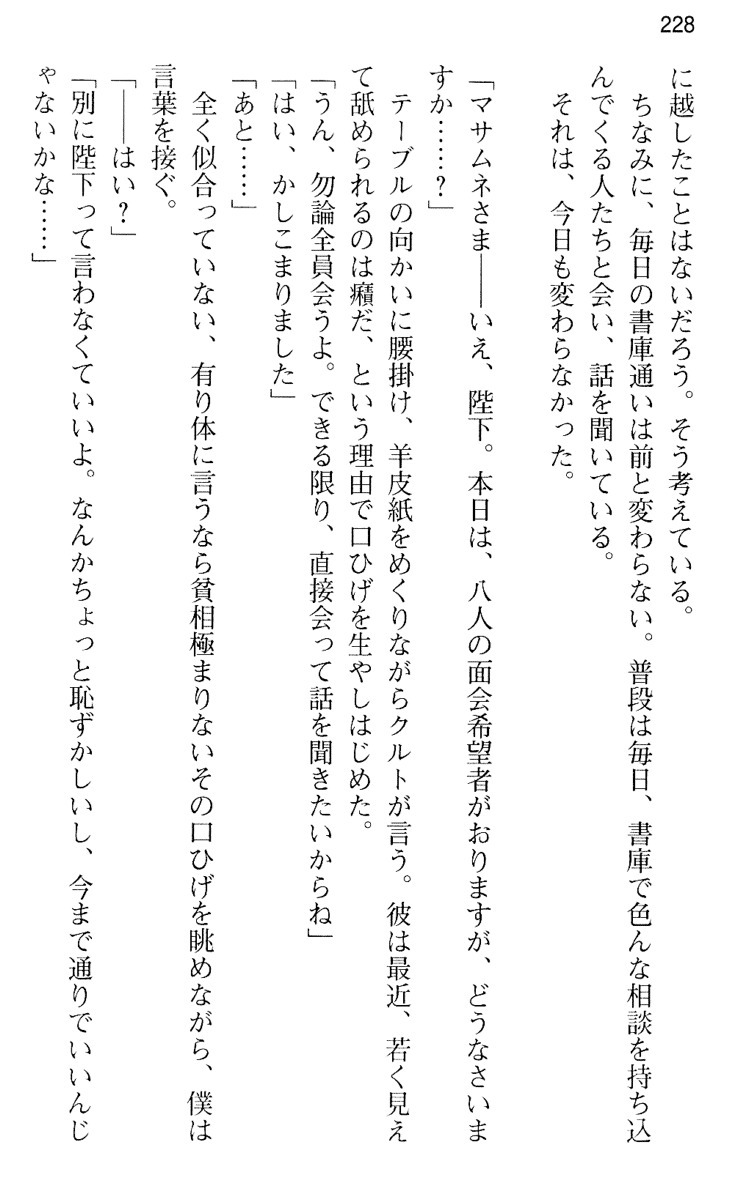 228
に越したことはないだろう。そう考えている。
　ちなみに、毎日の書庫通いは前と変わらない。普段は毎日、書庫で色んな相談を持ち込
んでくる人たちと会い、話を聞いている。
　それは、今日も変わらなかった。
「マサムネさま――いえ、陛下。本日は、八人の面会希望者がおりますが、どうなさいま
すか……？」
　テーブルの向かいに腰掛け、羊皮紙をめくりながらクルトが言う。彼は最近、若く見え
て舐められるのは癪だ、という理由で口ひげを生やしはじめた。
「うん、勿論全員会うよ。できる限り、直接会って話を聞きたいからね」
「はい、かしこまりました」
「あと……」
　全く似合っていない、有り体に言うなら貧相極まりないその口ひげを眺めながら、僕は
言葉を接ぐ。
「――はい？」
「別に陛下って言わなくていいよ。なんかちょっと恥ずかしいし、今まで通りでいいんじ
ゃないかな……」